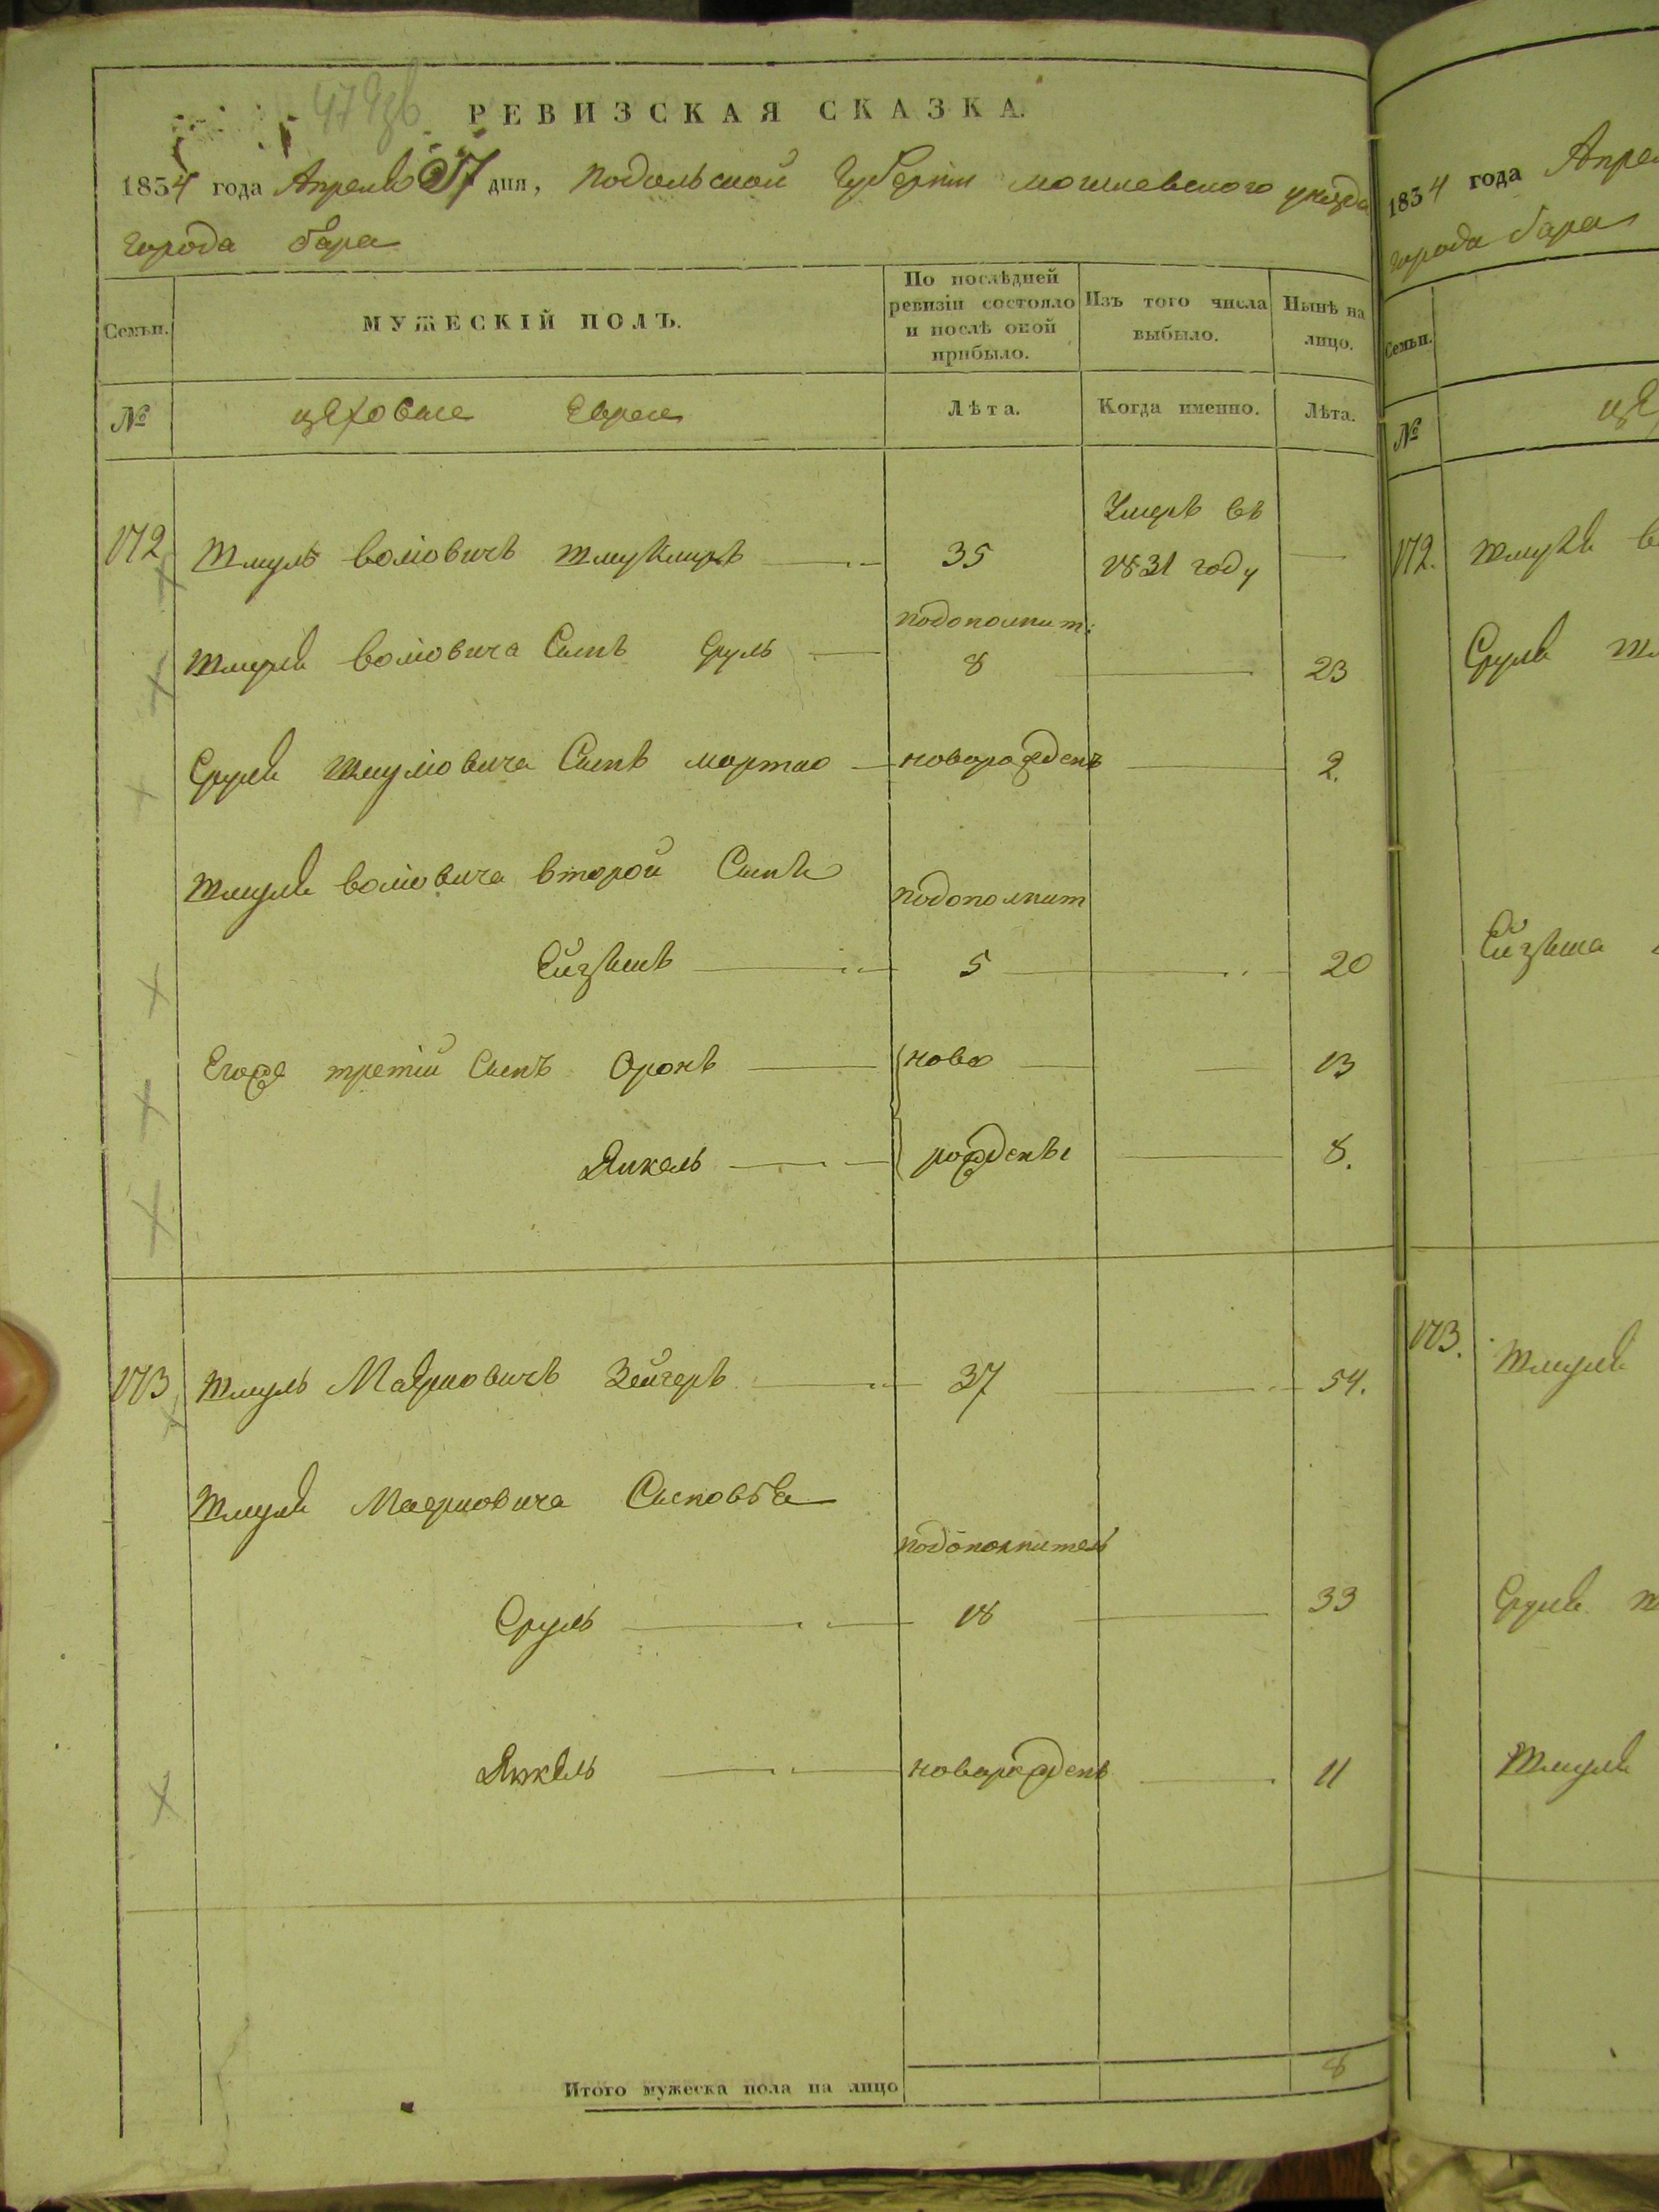 РЕВИЗСКАЯ СКАЗКА.
1834 года Апреля 17 дня, Подольской Губернии могилевского уезда
города бара
Семьи.
МУЖЕСКІЙ ПОЛЪ.
По послѣдней
ревизіи состояло
и послѣ оной
прибыло.
Изъ того числа
выбыло.
Нынѣ на
лицо.
№
цеховые Евреи
Лѣта.
Когда именно.
Лѣта.
172 Шмуль воліовичъ 35 Умеръ въ
1831 году
Шмуля воліовича Сынъ Сруль подополнит: 8 23
Сруля Шмуліовича Сынъ мортко новорожденъ 2.
Шмуля воліовича второй Сынъ подополнит
5 20
Егоже третій Сынъ Оронъ ново 13
Янкель рожденъі 8.
173 Шмуль Маеріовичъ Зейгеръ 37 54.
Шмуля Маеріовича Сыновья
подополнитель
Сруль 18 33
Янкель новорожденъ 11
Итого мужеска пола на лицо 8
1834 года
города бара
Семьи.
№
172.
Сруля
173.
Шмуля
Сруля
Шмуля